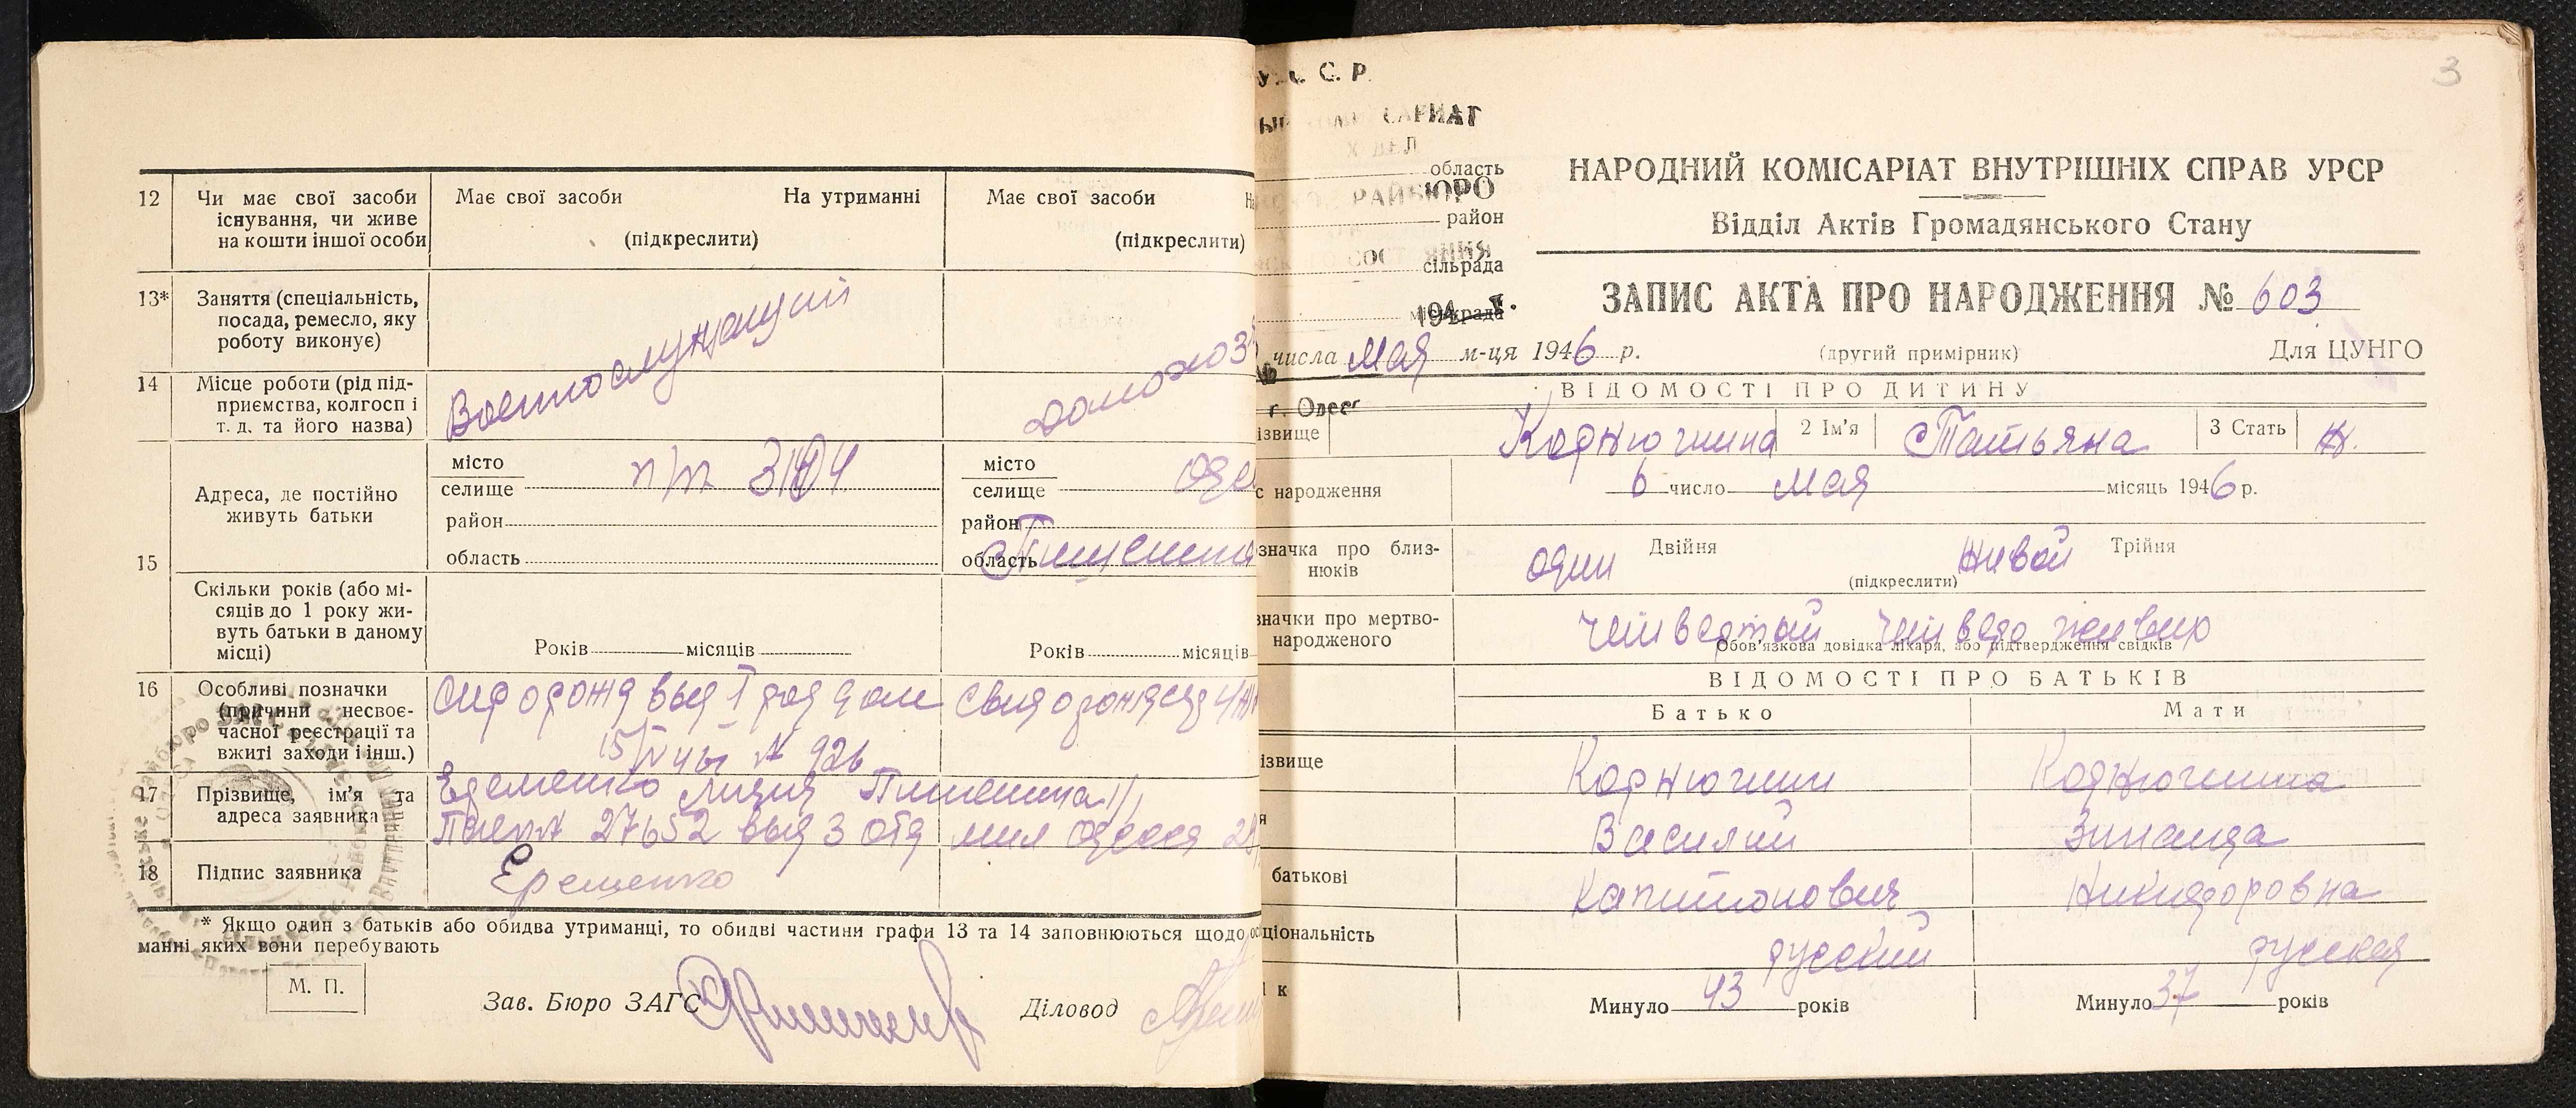 12
Чи має свої засоби
існування, чи живе
на кошти іншої особи
Має свої засоби На утриманні
(підкреслити)
Має свої засоби
(підкреслити)
13*
Заняття (спеціальність,
посада, ремесло, яку
роботу виконує)
14
Місце роботи (рід під-
приємства, колгосп і
т. д. та його назва)
Военнослужащий
домохоз
15
Адреса, де постійно
живуть батьки
місто
селище п/п
район
область
місто
селище Оде
район
область
Скільки років (або мі-
сяців до 1 року жи-
вуть батьки в даному
місці)
Років місяців
Років місяців
16
Особливі позначки
(причини несвоє-
часної реєстрації та
вжиті заходи і інш.)
выд I род дом
№ 926
17
Прізвище, ім'я та
адреса заявника
Еременко Лидия
27652 выд 3 отд мил Одесса
18
Підпис заявника
Еременко
* Якщо один з батьків або обидва утриманці, то обидві частини графи 13 та 14 заповнюються щодо ос
манні яких вони перебувають
М. П.
Зав. Бюро ЗАГС
Діловод
3
У. С. С. Р.
САРИАТ
Х ДЕЛ
область
РАЙБЮРО
район
СОСТОЯНИЯ
сільрада
міськрада
194 г.
г. Одесс
НАРОДНИЙ КОМІСАРІАТ ВНУТРІШНІХ СПРАВ УРСР
Відділ Актів Громадянського Стану
ЗАПИС АКТА ПРО НАРОДЖЕННЯ № 603
числа мая м-ця 1946 р.
(другий примірник)
Для ЦУНГО
ВІДОМОСТІ ПРО ДИТИНУ
ізвище Коднючина 2 Ім'я Татьяна 3 Стать ж.
с народження 6 число мая місяць 1946 р.
значка про близ-
нюків
один Двійня живой Трійня
(підкреслити)
значки про мертво-
народженого
четвертый четверо живых
Обов'язкова довідка лікаря, або підтвердження свідків
ВІДОМОСТІ ПРО БАТЬКІВ
Батько Мати
ізвище Коднючин Коднючина
я Василий Зинаида
батькові Капитонович Никифоровна
ціональність русский русская
ік Минуло 43 років Минуло 37 років